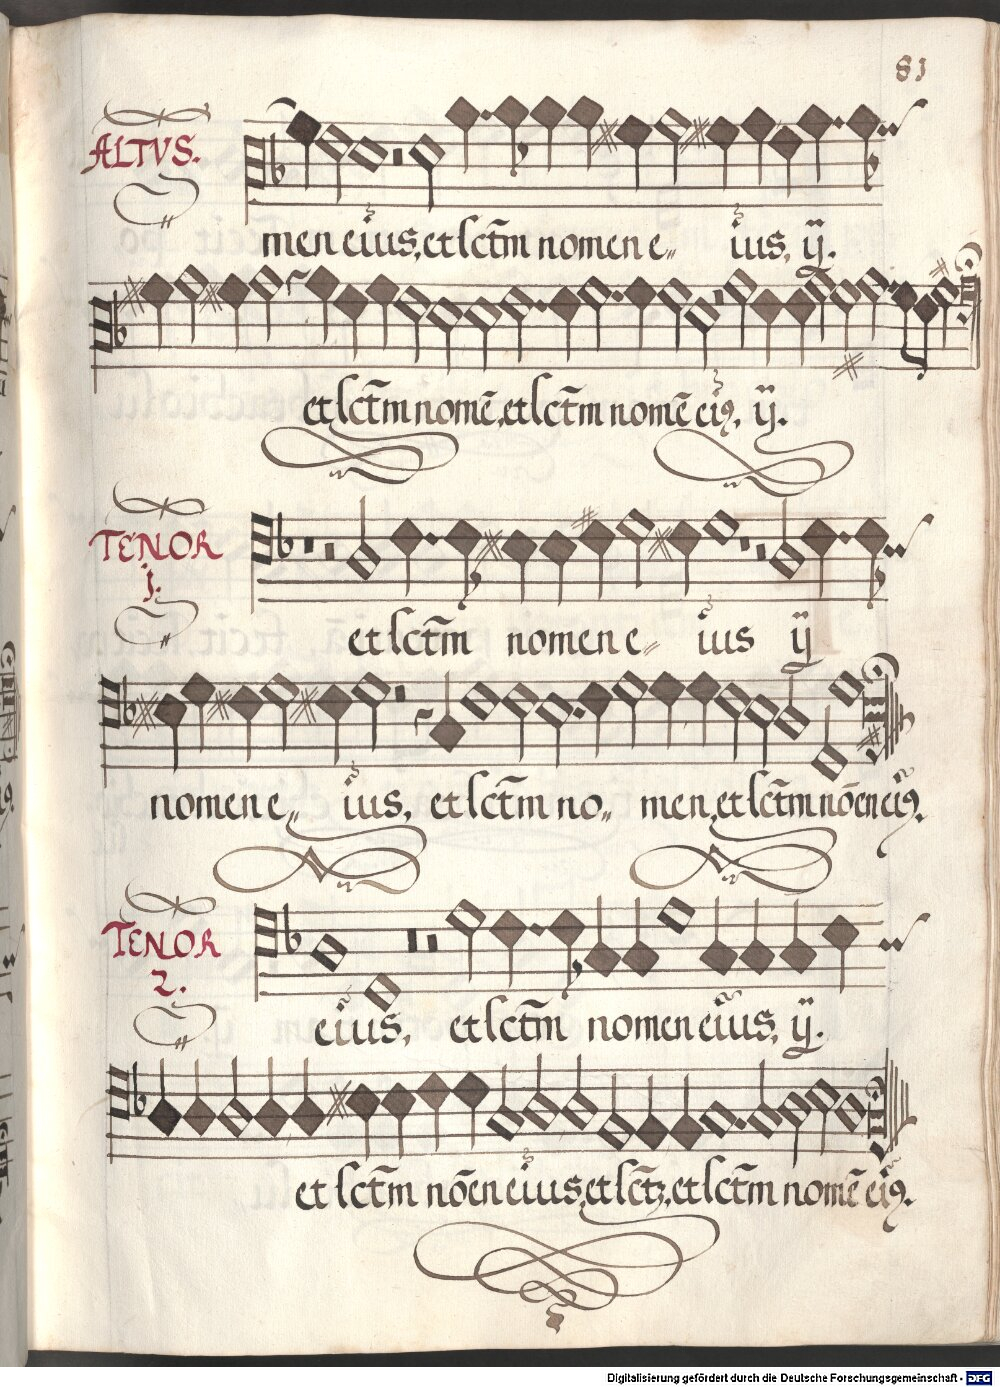 81
ALTVS.
men eius, et sctm̄ nomen e„ ius, ij.
et sctm̄ nomē, et sctm̄ nomē eiꝰ, ij.
TENOR
1.
et sctm̄ nomen e„ ius ij
nomen e„ ius, et sctm̄ no„ men, et sctm̄ nōen eiꝰ.
TENOR
2.
eius, et sctm̄ nomen eius, ij.
et sctm̄ nōen eius, et sctʒ, et sctm̄ nomē eiꝰ.
Digitalisierung gefördert durch die Deutsche Forschungsgemeinschaft - DFG